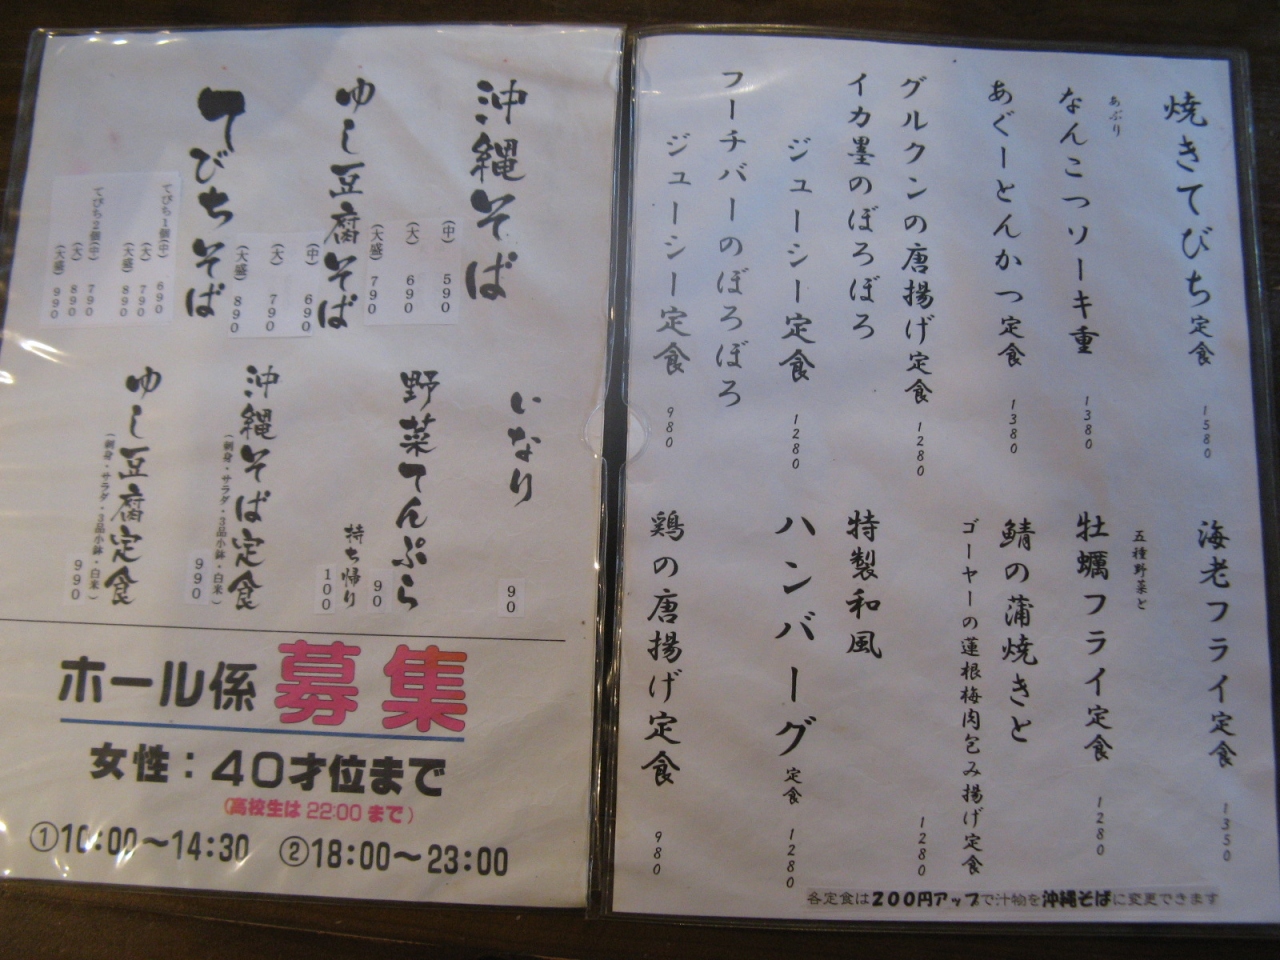 焼きてびち定食 1580
あぶり
なんこつソーキ重 1380
あぐーとんかつ定食 1380
グルクンの唐揚げ定食 1280
イカ墨のぼろぼろ
ジューシー定食 1280
フーチバーのぼろぼろ
ジューシー定食 980
海老フライ定食 1350
五種野菜と
牡蠣フライ定食 1280
鯖の蒲焼きと
ゴーヤーの蓮根梅肉包み揚げ定食 1280
特製和風
ハンバーグ定食 1280
鶏の唐揚げ定食 980
各定食は200円アップで汁物を沖縄そばに変更できます
沖縄そば
(中) 590
(大) 690
(大盛) 790
ゆし豆腐そば
(中) 690
(大) 790
(大盛) 890
てびちそば
てびち1個(中) 690
(大) 790
(大盛) 890
てびち2個(中) 790
(大) 890
(大盛) 990
いなり 90
野菜てんぷら 90
持ち帰り 100
沖縄そば定食
(刺身・サラダ・3品小鉢・白米) 990
ゆし豆腐定食
(刺身・サラダ・3品小鉢・白米) 990
ホール係 募集
女性：40才位まで
(高校生は 22:00 まで)
①10:00～14:30 ②18:00～23:00